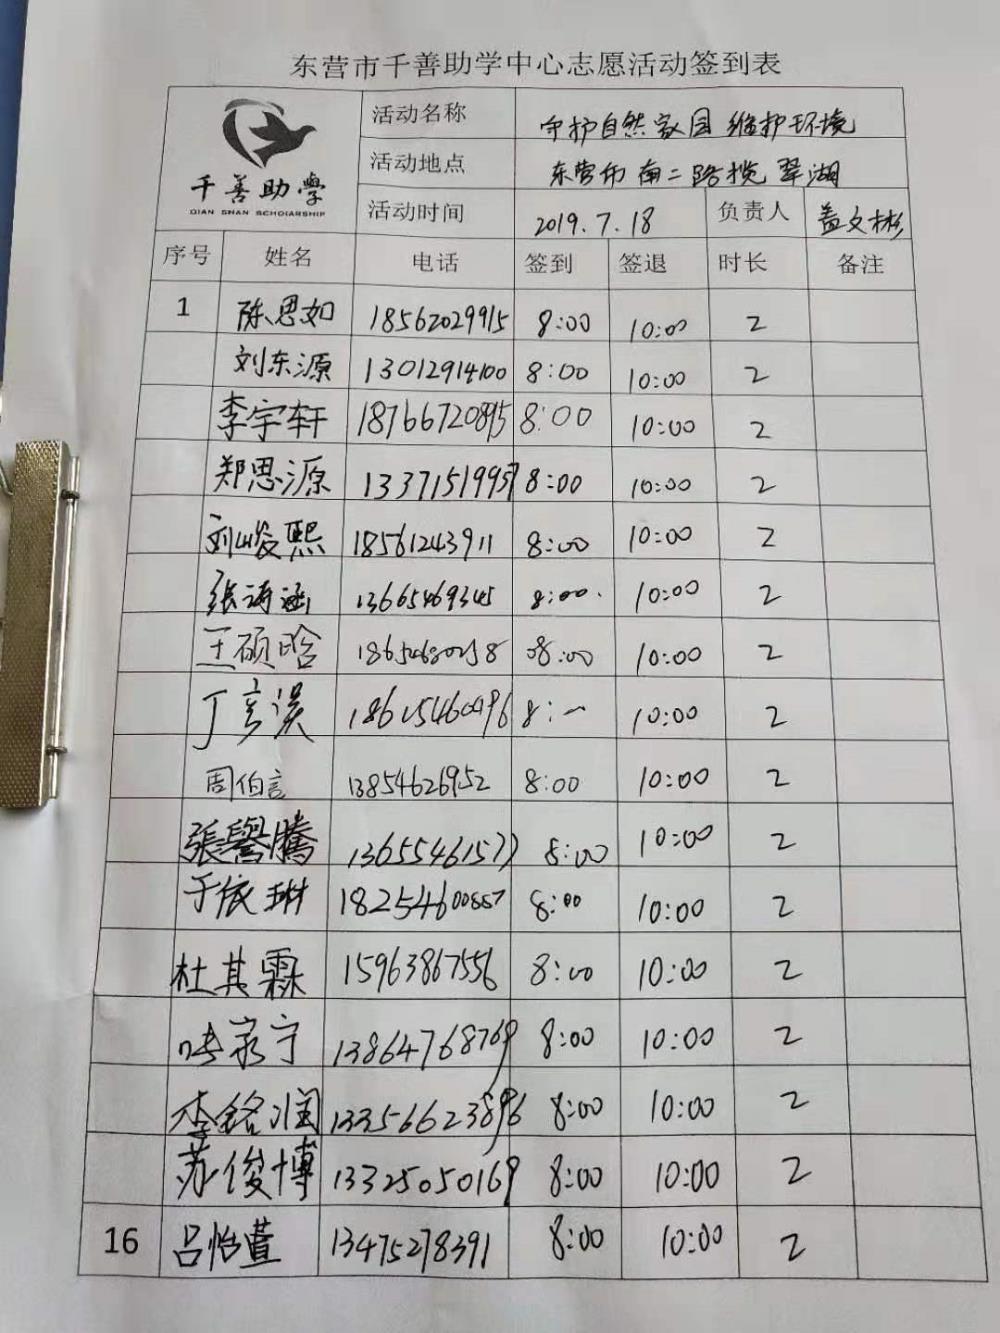 东营市千善助学中心志愿活动签到表
千善助學
QIAN SHAN SCHOIARSHIP
活动名称 守护自然家园 维护环境
活动地点 东营市南二路揽翠湖
活动时间 2019.7.18 负责人 盖文彬
序号 姓名 电话 签到 签退 时长 备注
1 陈思如 18562029915 8:00 10:00 2
刘东源 13012914100 8:00 10:00 2
李宇轩 18766720895 8:00 10:00 2
郑思源 13371519957 8:00 10:00 2
刘峻熙 18561243911 8:00 10:00 2
张诗涵 13665469345 8:00 10:00 2
王硕晗 8:00 10:00 2
丁 8: 10:00 2
周伯言 13854626952 8:00 10:00 2
張譽騰 8:00 10:00 2
于依琳 8:00 10:00 2
杜其霖 15963867556 8:00 10:00 2
13864768769 8:00 10:00 2
李铭润 13356623896 8:00 10:00 2
苏俊博 13325050169 8:00 10:00 2
16 吕怡萱 13475278391 8:00 10:00 2